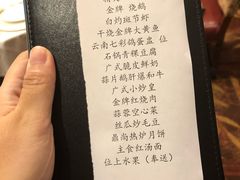 金牌 烧鹅
白灼斑节虾
干烧金牌大黄鱼
云南七彩鸽蛋盅 位
石锅青稞豆腐
广式脆皮鲜奶
蒜片鹅肝爆和牛
广式小炒皇
金牌红烧肉
蒜蓉空心菜
丝瓜炒毛豆
鼎尚热炉月饼
主食红汤面
位上水果（奉送）